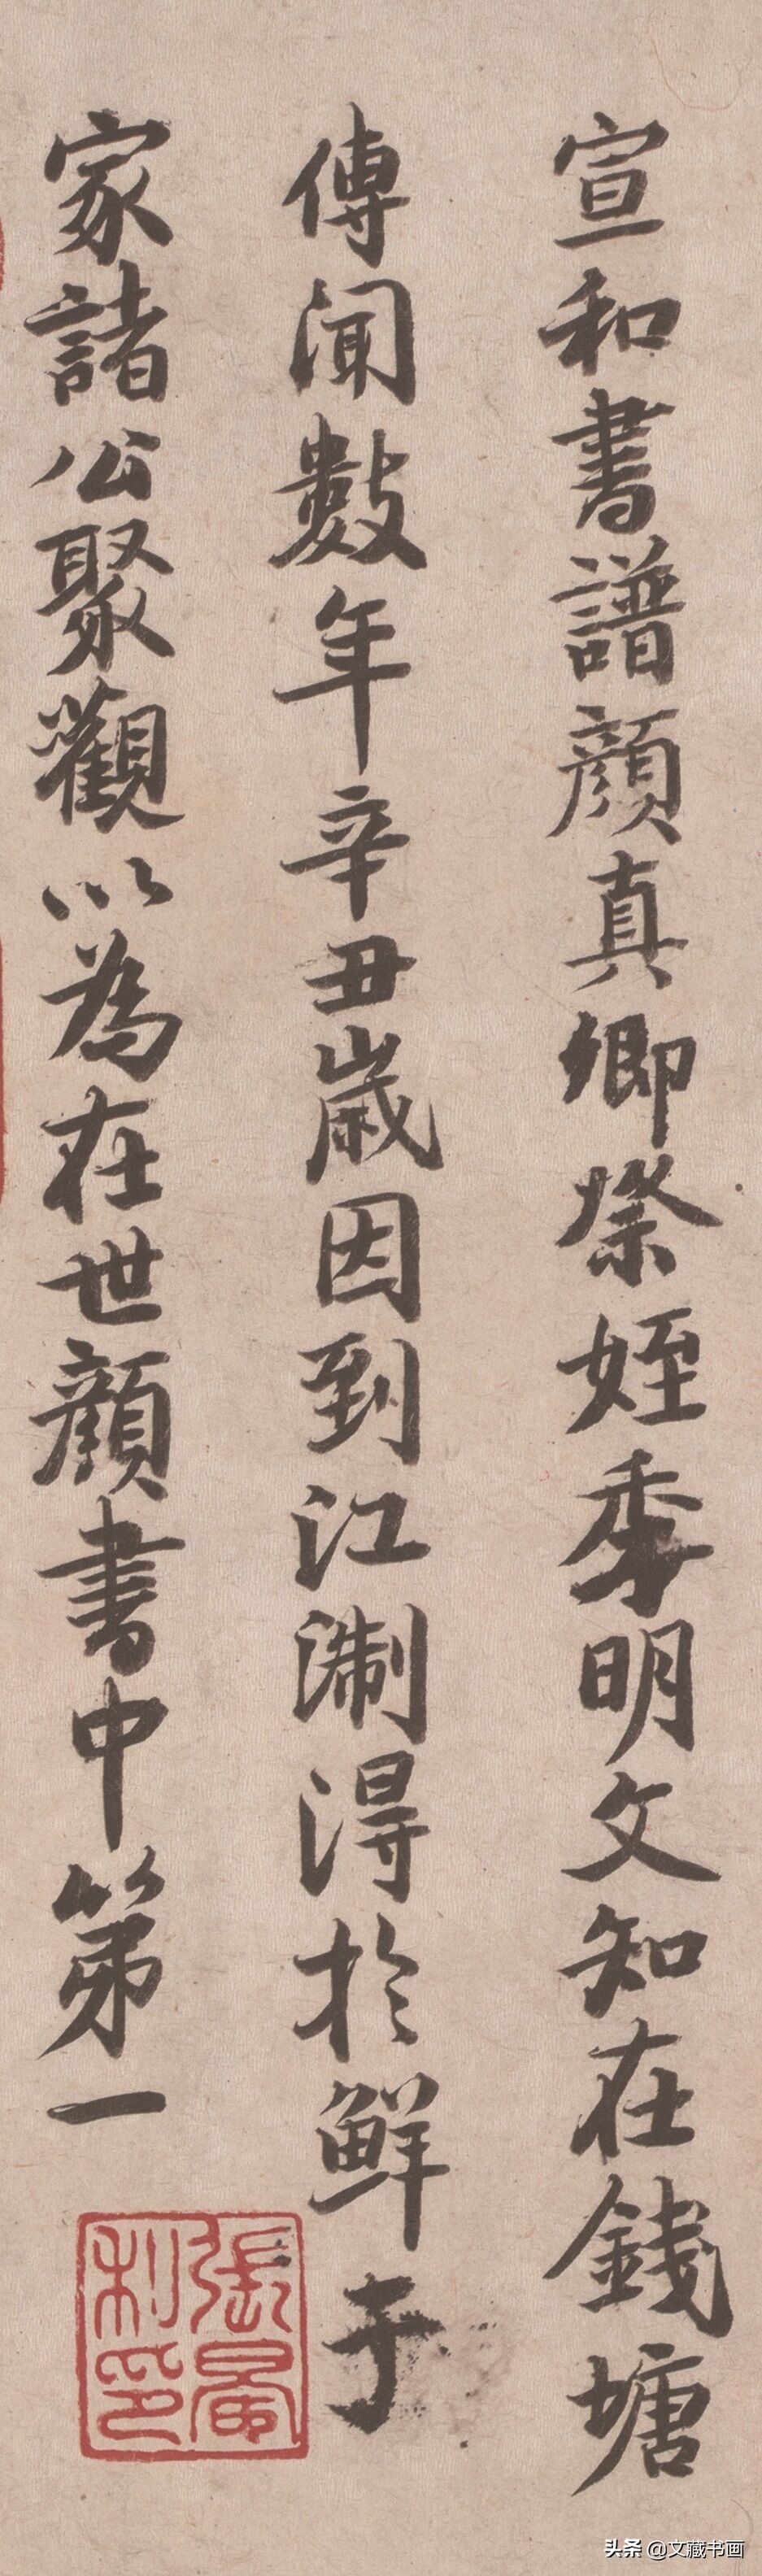 宣和書譜顔真卿祭姪季明文知在錢塘
傳聞數年辛丑歳因到江淛淂扵鮮于
家諸公聚觀以為在世顔書中第一
張晏
私印
头条 @文藏书画